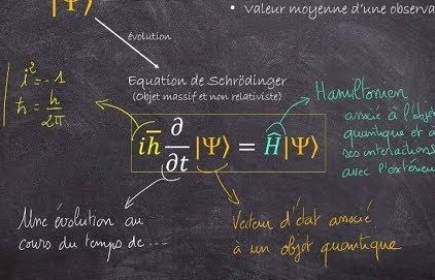 |Ψ⟩
• valeur moyenne d'une observa
évolution
Equation de Schrödinger
(Objet massif et non relativiste)
i² = -1
ħ = h/2π
Hamiltonien
associé à l'objet
quantique et à
ses interactions
avec l'extérieur
iħ ∂/∂t |Ψ⟩ = Ĥ|Ψ⟩
Une évolution au
cours du temps de ---
Vecteur d'état associé
à un objet quantique